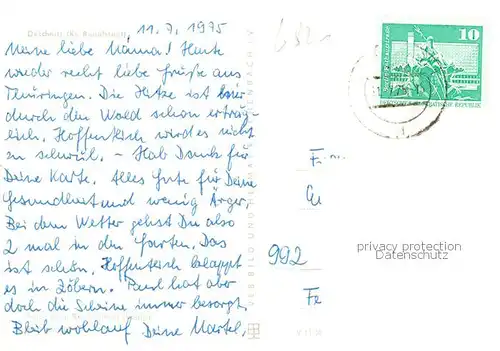 11. 7. 1975
Meine liebe Mama! Heute
wieder recht liebe Grüße aus
Thüringen. Die Hitze ist hier
durch den Wald schon erträg-
lich. Hoffentlich wird es nicht
zu schwül. – Hab Dank für
Deine Karte. Alles Gute für Deine
Gesundheit und wenig Ärger.
Bei dem Wetter gehst Du also
2 mal in den Garten. Das
ist schön. Hoffentlich klappt
es in Zöbern. Paul hat aber
doch die Scheine immer besorgt.
Bleib wohlauf Deine Martel.
10
992
privacy protection
Datenschutz